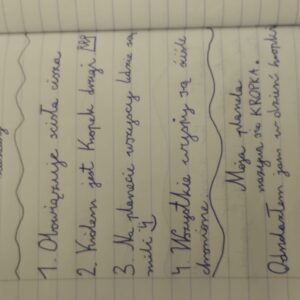 1. Obowiązuje ścisła cisza
2. Królem jest Kropek drugi
3. Na planecie wszyscy ludzie są
mili
4. Wszystkie wyspy są ściśle
chronione.
Moja planeta
nazywa się KROPKA.
w dzień kropki